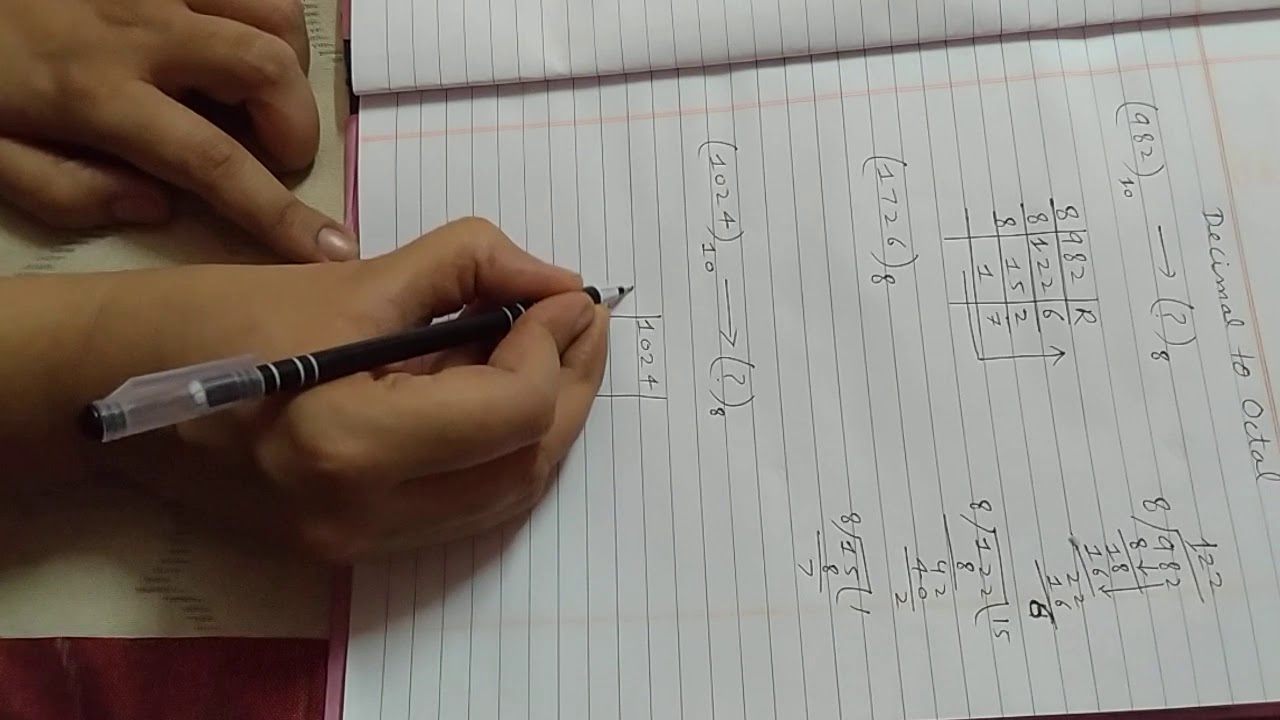 Decimal to Octal
(982)10 → (?)8
8 982 R
8 122 6
8 15 2
1 7
(1726)8
122
8/982
8↓
18
16↓
22
16
6
8/122(15
8
42
40
2
8/15(1
8
7
(1024)10 → (?)8
1024